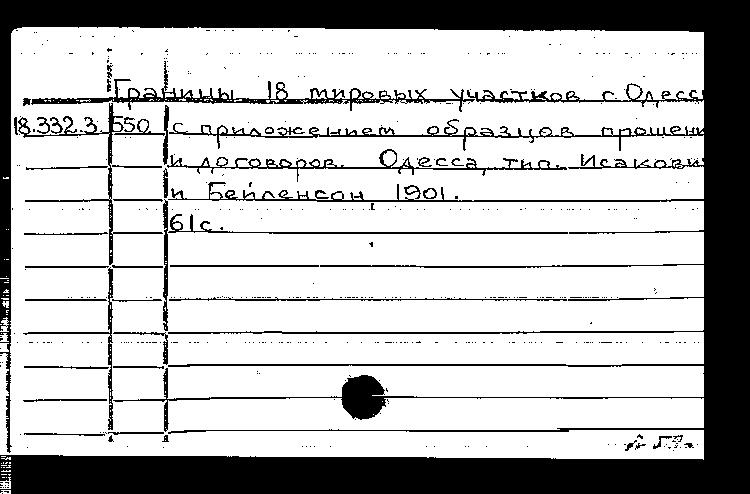 Границы 18 мировых участков г. Одесс
18.332.3.550 с приложением образцов прошени
и договоров. Одесса, тип. Исакови
и Бейленсон, 1901.
61 с.